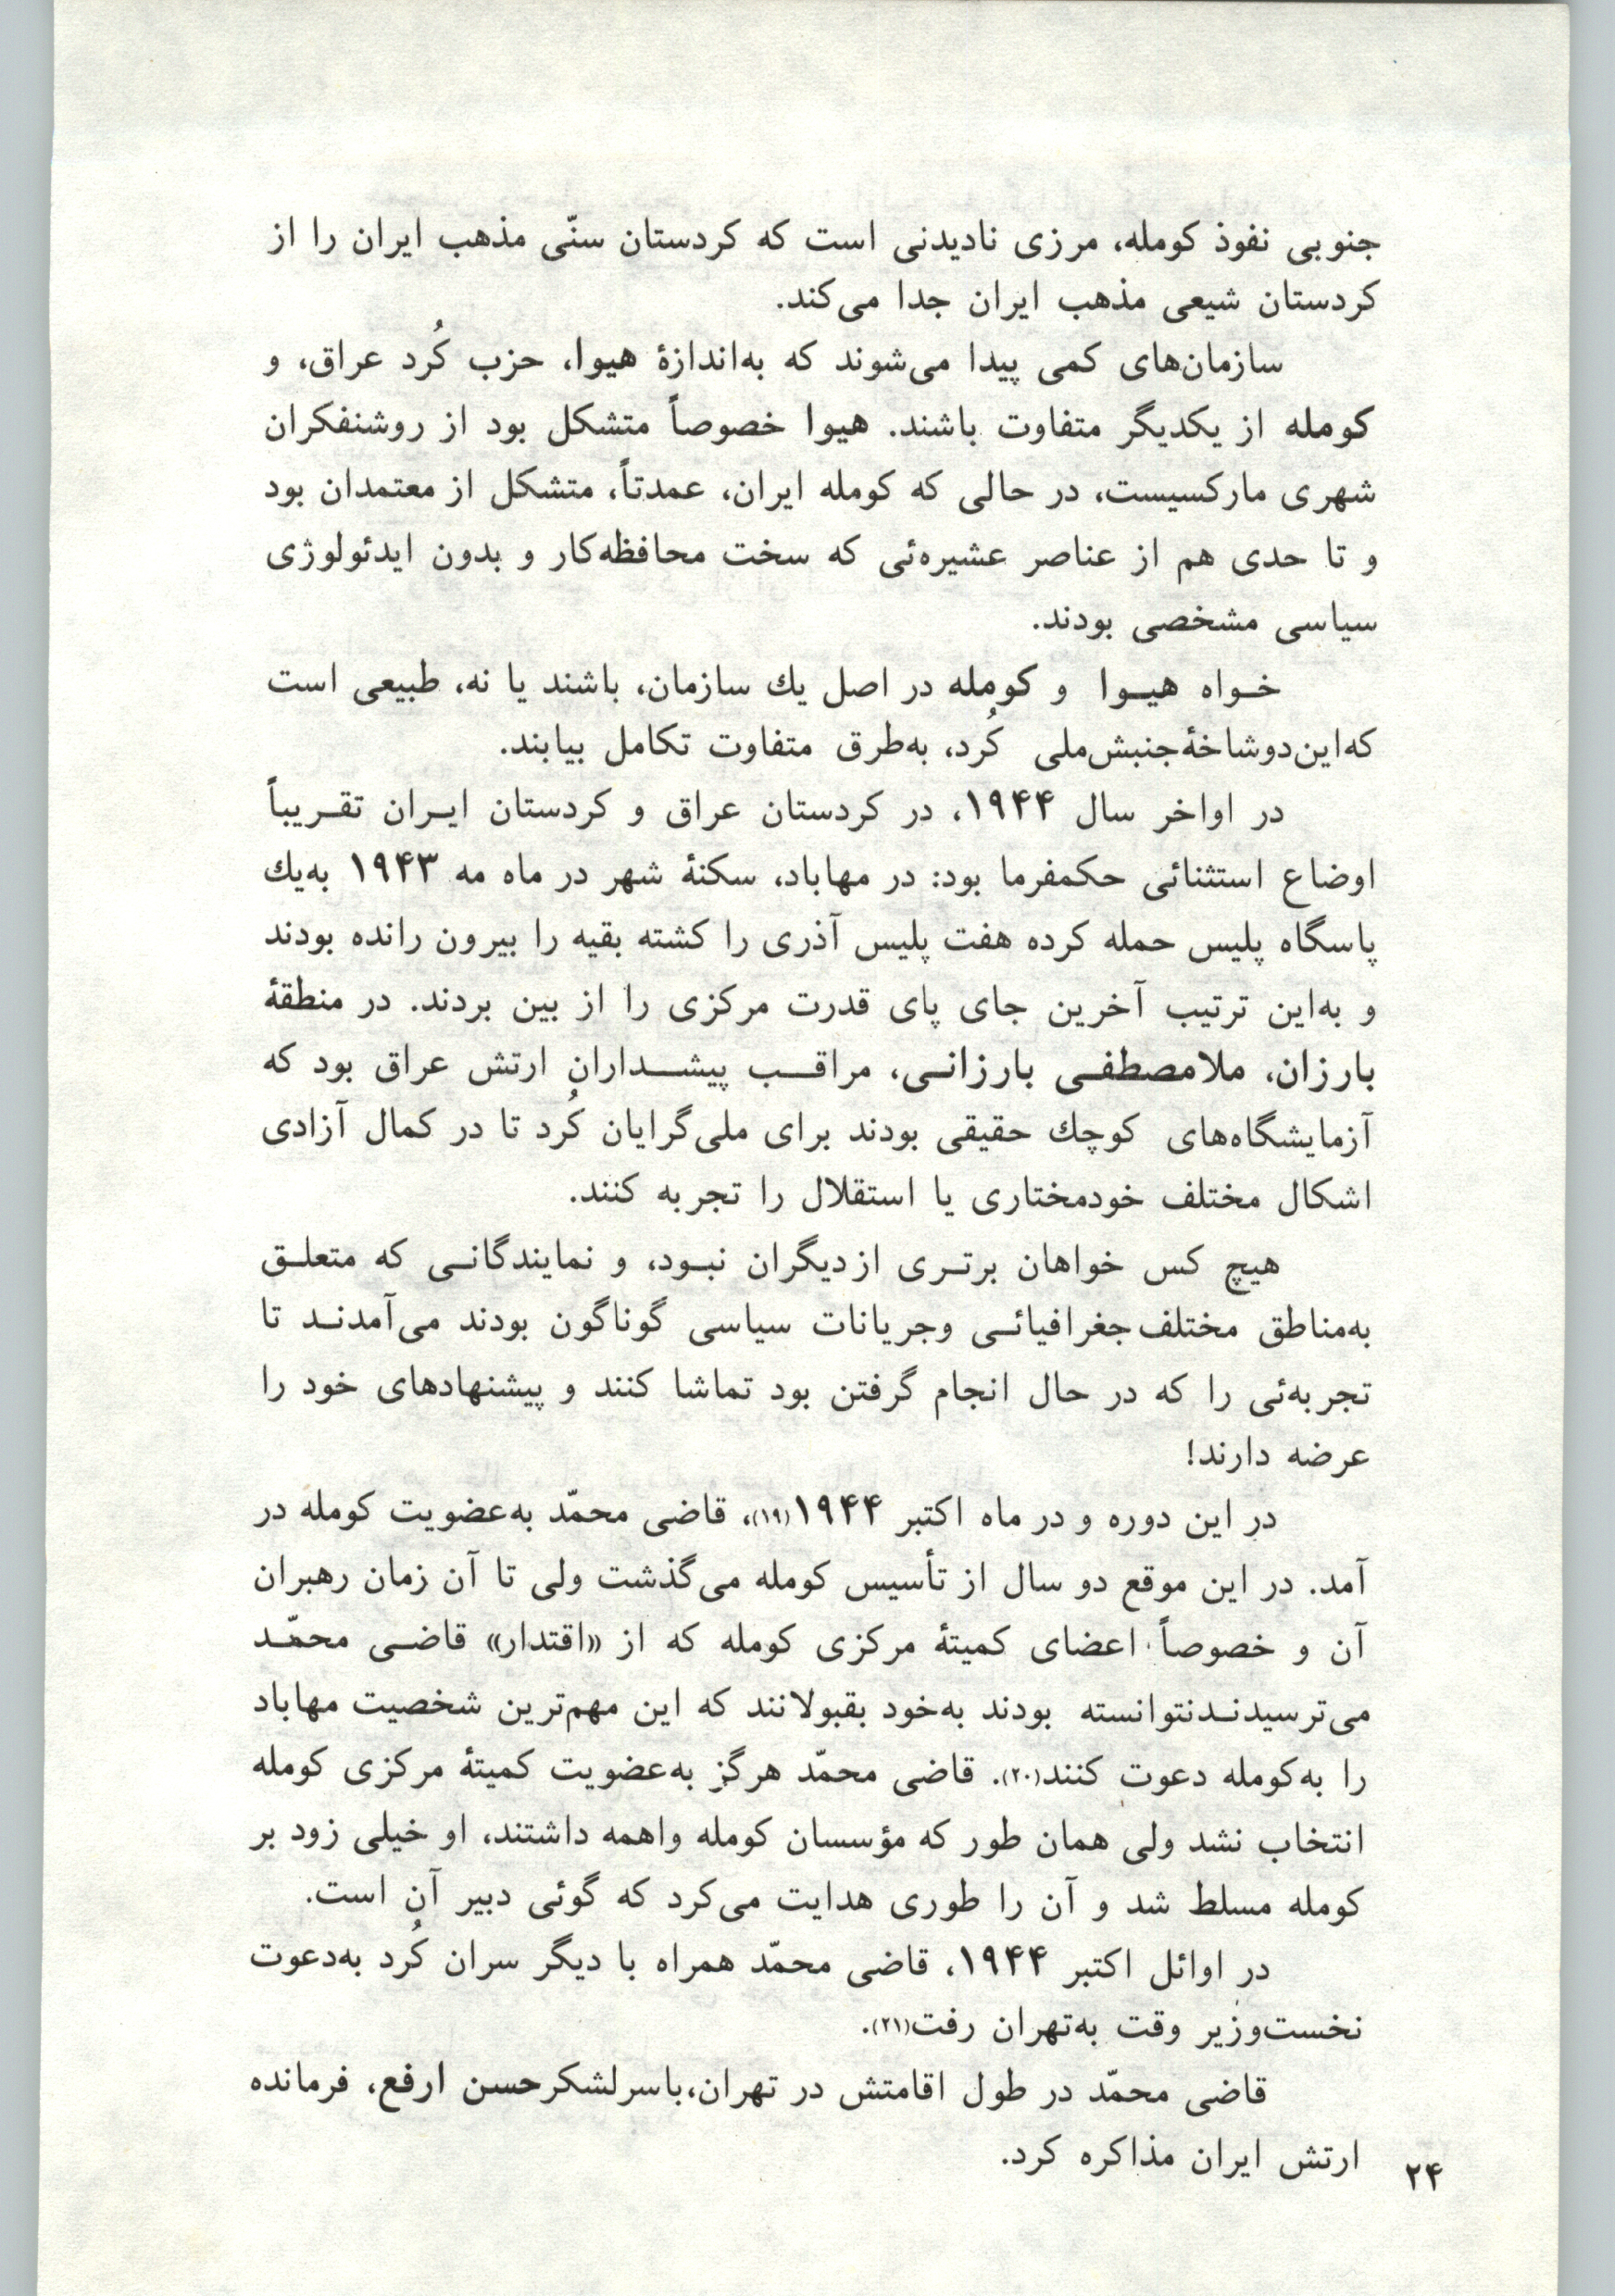 جنوبی نفوذ کومله، مرزی نادیدنی است که کردستان سنّی مذهب ایران را از
کردستان شیعی مذهب ایران جدا می‌کند.
سازمان‌های کمی پیدا می‌شوند که به‌اندازهٔ هیوا، حزب کُرد عراق، و
کومله از یکدیگر متفاوت باشند. هیوا خصوصاً متشکل بود از روشنفکران
شهری مارکسیست، در حالی که کومله ایران، عمدتاً، متشکل از معتمدان بود
و تا حدی هم از عناصر عشیره‌ئی که سخت محافظه‌کار و بدون ایدئولوژی
سیاسی مشخصی بودند.
خواه هیوا و کومله در اصل یك سازمان، باشند یا نه، طبیعی است
که‌این‌دوشاخهٔ‌جنبش‌ملی کُرد، به‌طرق متفاوت تکامل بیابند.
در اواخر سال ۱۹۴۴، در کردستان عراق و کردستان ایران تقریباً
اوضاع استثنائی حکمفرما بود: در مهاباد، سکنهٔ شهر در ماه مه ۱۹۴۳ به‌یك
پاسگاه پلیس حمله کرده هفت پلیس آذری را کشته بقیه را بیرون رانده بودند
و به‌این ترتیب آخرین جای پای قدرت مرکزی را از بین بردند. در منطقهٔ
بارزان، ملامصطفی بارزانی، مراقب پیشداران ارتش عراق بود که
آزمایشگاه‌های کوچك حقیقی بودند برای ملی‌گرایان کُرد تا در کمال آزادی
اشکال مختلف خودمختاری یا استقلال را تجربه کنند.
هیچ کس خواهان برتری ازدیگران نبود، و نمایندگانی که متعلق
به‌مناطق مختلف‌جغرافیائی وجریانات سیاسی گوناگون بودند می‌آمدند تا
تجربه‌ئی را که در حال انجام گرفتن بود تماشا کنند و پیشنهادهای خود را
عرضه دارند!
در این دوره و در ماه اکتبر ۱۹۴۴(۱۹)، قاضی محمّد به‌عضویت کومله در
آمد. در این موقع دو سال از تأسیس کومله می‌گذشت ولی تا آن زمان رهبران
آن و خصوصاً اعضای کمیتهٔ مرکزی کومله که از «اقتدار» قاضی محمّد
می‌ترسیدندنتوانسته بودند به‌خود بقبولانند که این مهم‌ترین شخصیت مهاباد
را به‌کومله دعوت کنند(۲۰). قاضی محمّد هرگز به‌عضویت کمیتهٔ مرکزی کومله
انتخاب نشد ولی همان طور که مؤسسان کومله واهمه داشتند، او خیلی زود بر
کومله مسلط شد و آن را طوری هدایت می‌کرد که گوئی دبیر آن است.
در اوائل اکتبر ۱۹۴۴، قاضی محمّد همراه با دیگر سران کُرد به‌دعوت
نخست‌وزیر وقت به‌تهران رفت(۲۱).
قاضی محمّد در طول اقامتش در تهران،باسرلشکرحسن ارفع، فرمانده
ارتش ایران مذاکره کرد.
۲۴